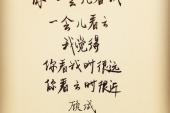 你一会儿看我
一会儿看云
我觉得
你看我时很远
你看云时很近
顾城